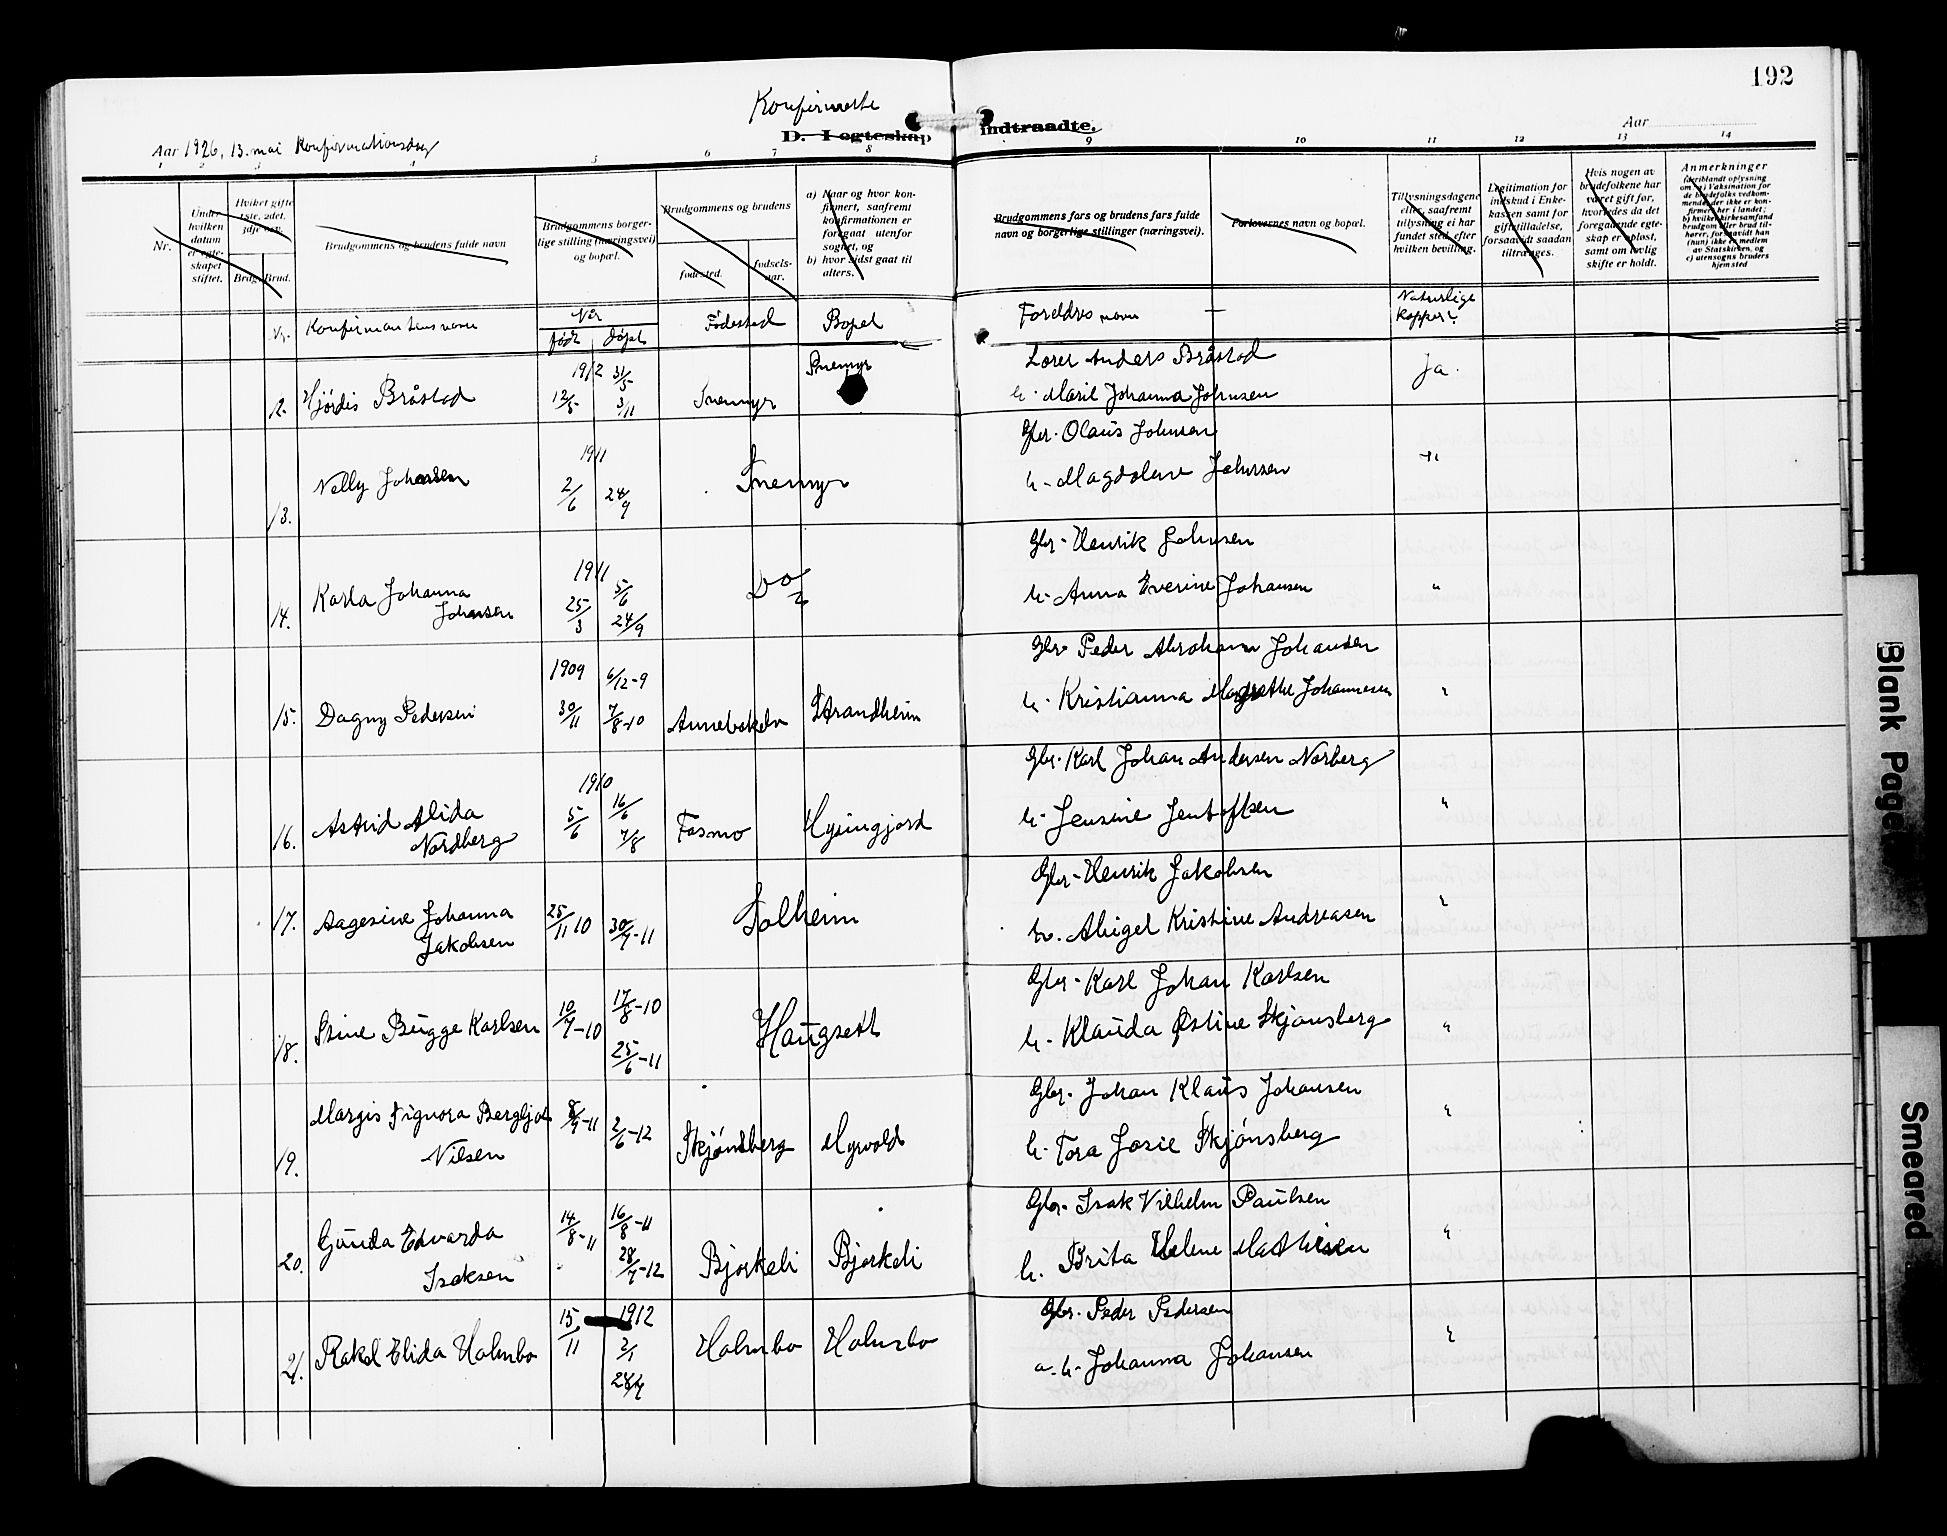 192
Konfirmerte
D. Legteskap indtraadte.
Aar 1926, 13. mai Konfirmationsdag
Aar
1 2 3 4 5 6 7 8 9 10 11 12 13 14
Nr.
Under hvilken datum er egteskapet stiftet.
Hvilket gifte 1ste, 2det, 3dje osv.
Brudg. Brud.
Brudgommens og brudens fulde navn
Brudgommens borgerlige stilling (næringsvei) og bopæl.
Brudgommens og brudens
fødested.
fødselsaar.
a) Naar og hvor konfirmert, saafremt konfirmationen er foregaat utenfor sognet, og
b) hvor sidst gaat til alters.
Brudgommens fars og brudens fars fulde navn og borgerlige stillinger (næringsvei).
Forlovernes navn og bopæl.
Tillysningsdagene eller saafremt tillysning ei har fundet sted, efter hvilken bevilling.
Legitimation for indskud i Enkekassen samt for gifttilladelse, forsaavidt saadan tiltrænges.
Hvis nogen av brudefolkene har været gift før, hvorledes da det foregaaende egteskap er opløst, samt om lovlig skifte er holdt.
Anmerkninger
(deriblandt oplysning om: a) Vaksination for de brudefolks vedkommende, der ikke er konfirmert her i landet; b) hvilket kirkesamfund brudgom eller brud tilhører, forsaavidt han (hun) ikke er medlem av Statskirken, og c) utensogns bruders hjemsted
Nr. Konfirmantens navn Når født døpt Fødested Bopel Foreldres navn — Naturlige kopper?
12. Hjórdis Bråstad 1912 12/5 31/5 3/11 Snemyr Snemyr Lærer Anders Bråstad h. Marit Johanna Johnsen Ja.
13. Nelly Johansen 1911 2/6 24/9 Snemyr Gbr. Olaus Johnsen h. Magdalene Johnsen "
14. Karla Johanna Johansen 1911 25/3 5/6 24/9 Do Gbr. Henrik Johnsen h. Anna Everine Johansen "
15. Dagny Pedersen 1909 30/11 6/12-9 7/8-10 Annebakken Strandheim Gbr Peder Abraham Johansen h. Kristianna Margrethe Johannesen "
16. Astrid Alida Nordberg 1910 5/6 16/6 7/8 Fosmo Hysingjord Gbr. Karl Johan Andersen Norberg h. Jensine Jentoftsen "
17. Aagesine Johanna Jakobsen 25/11 10 30/7-11 Solheim Gbr. Henrik Jakobsen h. Abigel Kristine Andreasen "
18. Stine Bugge Karlsen 10/7-10 17/8-10 25/6-11 Haugsett Gbr. Karl Johan Karlsen h. Klauda Østine Skjønsberg "
19. Margis Signora Bergljot Nilsen 8/9-11 2/6-12 Skjónsberg Myrvold Gbr. Johan Klaus Johansen h. Tora Josie Skjónsberg "
20. Gunda Edvarda Isaksen 14/8-11 16/8-11 28/7-12 Bjorkeli Bjorkeli Gbr. Isak Vilhelm Paulsen h. Brita Helene Mathisen "
21. Rakel Elida Holmbo 15/11 1912 2/1 28/7 Holmbo Holmbo Gbr. Peder Pedersen a. h. Johanna Johansen "
Blank Page
Smeared